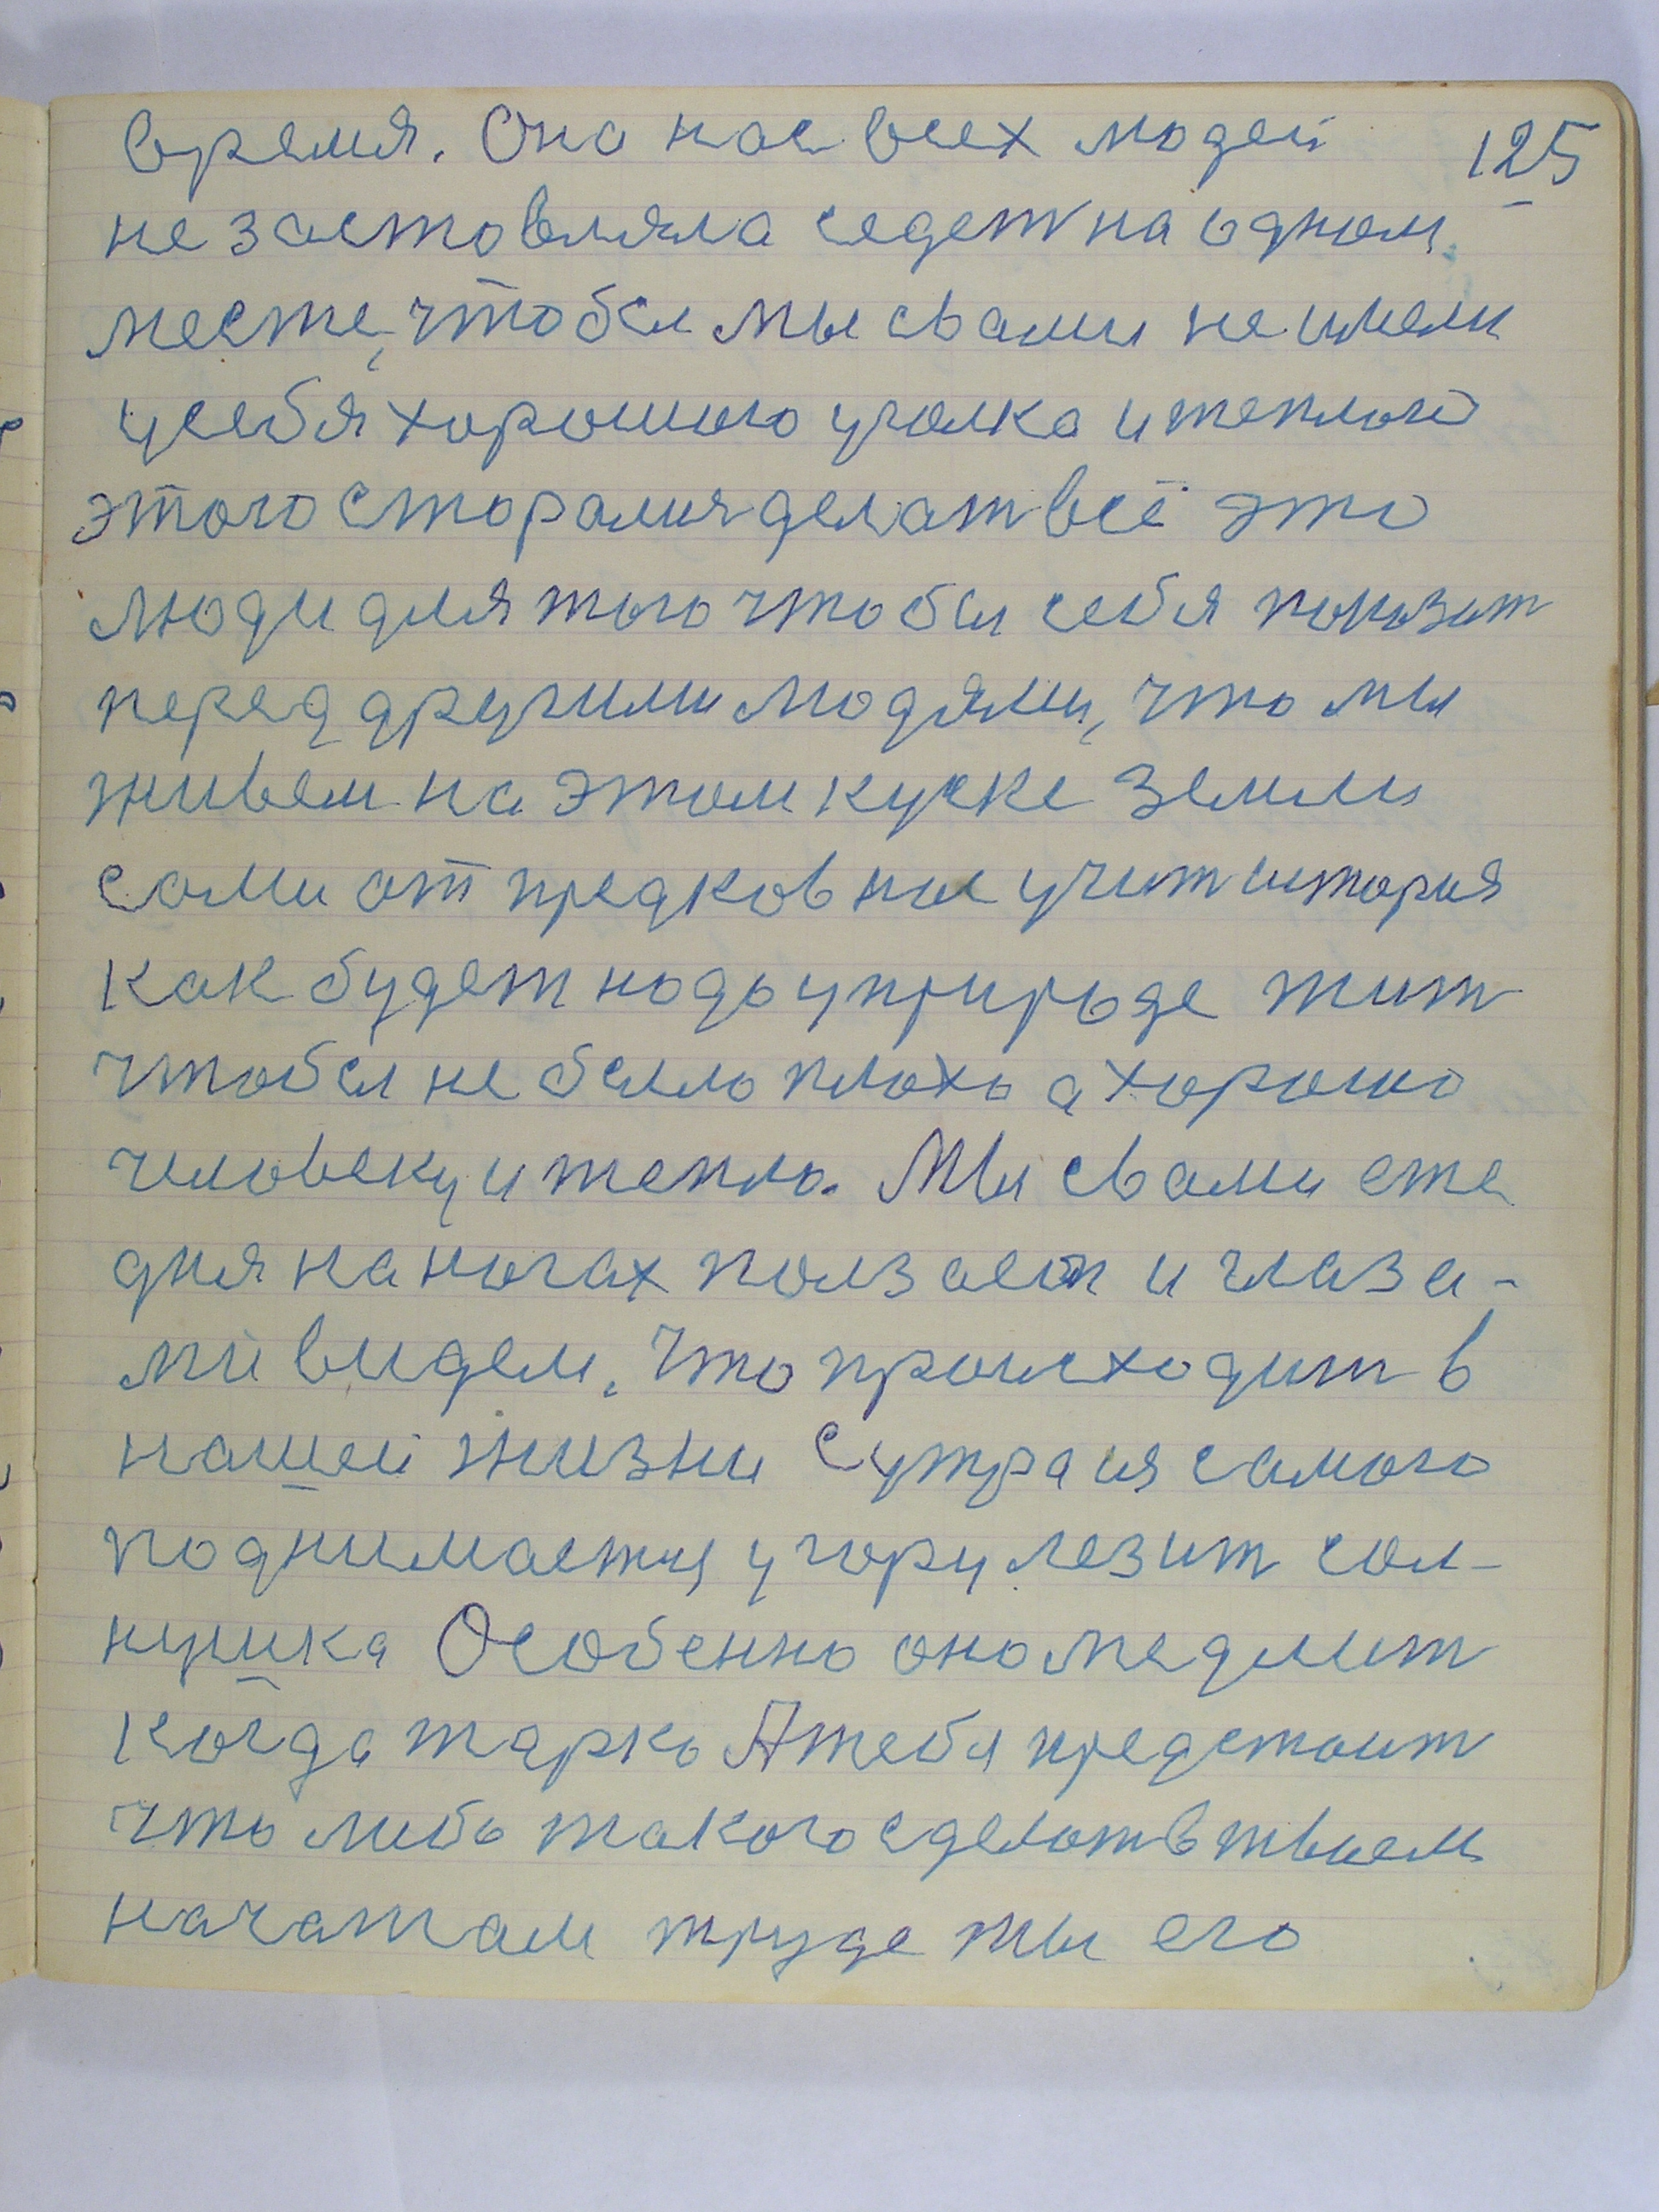 125
время. Она нас всех людей
не заставляла седет на одном
месте, чтобы мы свами не имели
усебя хорошого уголка и теплой
этого старамся делат всё это
люди для того чтобы себя показат
перед другими людями, что мы
живем на этом куске земли
сами от предков нас учит история
как будет надо уприроде жит
чтобы не было плохо а хорошо
человеку и тепло. Мы свами сте
дня на ногах ползаем и глаза-
ми видем. Что происходит в
нашей жизни Сутра ия самого
поднимается угору лезит сол-
нушка Особенно оно медлит
когда жарко А тебя предстоит
что либо такого сделат в твоем
начатам труде ты его